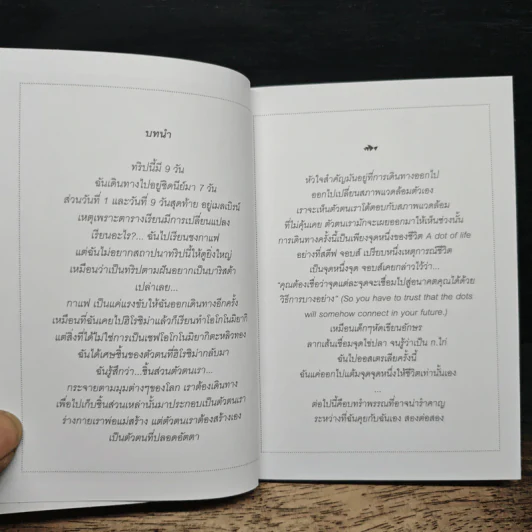 บทนำ
ทริปนี้มี 9 วัน
ฉันเดินทางไปอยู่ซิดนีย์มา 7 วัน
ส่วนวันที่ 1 และวันที่ 9 วันสุดท้าย อยู่เมลเบิร์น
เหตุเพราะตารางเรียนมีการเปลี่ยนแปลง
เรียนอะไร?... ฉันไปเรียนชงกาแฟ
แต่ฉันไม่อยากสถาปนาทริปนี้ให้ดูยิ่งใหญ่
เหมือนว่าเป็นทริปตามฝันอยากเป็นบาริสต้า
เปล่าเลย...
กาแฟ เป็นแค่แรงขับให้ฉันออกเดินทางอีกครั้ง
เหมือนที่ฉันเคยไปฮิโรชิม่าแล้วก็เรียนทำโอโกโนมิยากิ
แต่สิ่งที่ได้ไม่ใช่การเป็นเชฟโอโกโนมิยากิตะหลิวทอง
ฉันได้เศษชิ้นของตัวตนที่ฮิโรชิม่ากลับมา
ฉันรู้สึกว่า...ชิ้นส่วนตัวตนเรา...
กระจายตามมุมต่างๆของโลก เราต้องเดินทาง
เพื่อไปเก็บชิ้นส่วนเหล่านั้นมาประกอบเป็นตัวตนเรา
ร่างกายเราพ่อแม่สร้าง แต่ตัวตนเราต้องสร้างเอง
เป็นตัวตนที่ปลอดอัตตา
หัวใจสำคัญมันอยู่ที่การเดินทางออกไป
ออกไปเปลี่ยนสภาพแวดล้อมตัวเอง
เราจะเห็นตัวตนเราโต้ตอบกับสภาพแวดล้อม
ที่ไม่คุ้นเคย ตัวตนเรามักจะเผยออกมาให้เห็นช่วงนั้น
การเดินทางครั้งนี้เป็นเพียงจุดหนึ่งของชีวิต A dot of life
อย่างที่สตีฟ จอบส์ เปรียบหนึ่งเหตุการณ์ชีวิต
เป็นจุดหนึ่งจุด จอบส์เคยกล่าวไว้ว่า...
"คุณต้องเชื่อว่าจุดแต่ละจุดจะเชื่อมไปสู่อนาคตคุณได้ด้วย
วิธีการบางอย่าง" (So you have to trust that the dots
will somehow connect in your future.)
เหมือนเด็กๆหัดเขียนอักษร
ลากเส้นเชื่อมจุดไข่ปลา จนรู้ว่าเป็น ก.ไก่
ฉันไปออสเตรเลียครั้งนี้
ฉันแค่ออกไปแต้มจุดจุดหนึ่งให้ชีวิตเท่านั้นเอง
...
ต่อไปนี้คือบทรำพรรณที่อาจน่ารำคาญ
ระหว่างที่ฉันคุยกับฉันเอง สองต่อสอง